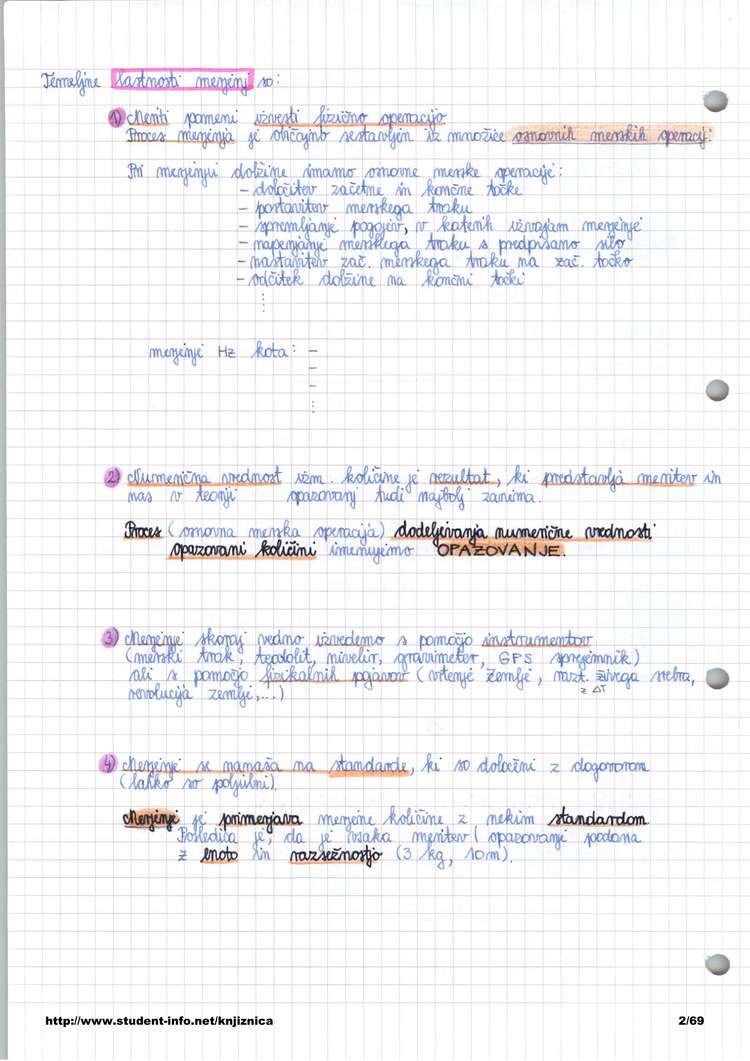 Temeljne lastnosti merjenj so:
1) Meriti pomeni izvesti fizično operacijo
Proces merjenja je običajno sestavljen iz množice osnovnih merskih operacij:
Pri merjenju dolžine imamo osnovne merske operacije:
- določitev začetne in končne točke
- postavitev merskega traku
- spremljanje pogojev, v katerih izvajam merjenje
- napenjanje merskega traku s predpisano silo
- nastavitev zač. merskega traku na zač. točko
- odčitek dolžine na končni točki
⋮
merjenje Hz kota: -
-
-
⋮
2) Numerična vrednost izm. količine je rezultat, ki predstavlja meritev in
nas v teoriji opazovanj tudi najbolj zanima.
Proces (osnovna merska operacija) dodeljevanja numerične vrednosti
opazovani količini imenujemo OPAZOVANJE.
3) Merjenje skoraj vedno izvedemo s pomočjo instrumentov
(merski trak, teodolit, nivelir, gravimeter, GPS sprejemnik)
ali s pomočjo fizikalnih pojavov (vrtenje zemlje, razt. živega srebra,
z ΔT
revolucija zemlje,...)
4) Merjenje se nanaša na standarde, ki so določeni z dogovorom
(lahko so poljubni).
Merjenje je primerjava merjene količine z nekim standardom
Posledica je, da je vsaka meritev ( opazovanje podana
z enoto in razsežnostjo (3 kg, 10m).
http://www.student-info.net/knjiznica 2/69